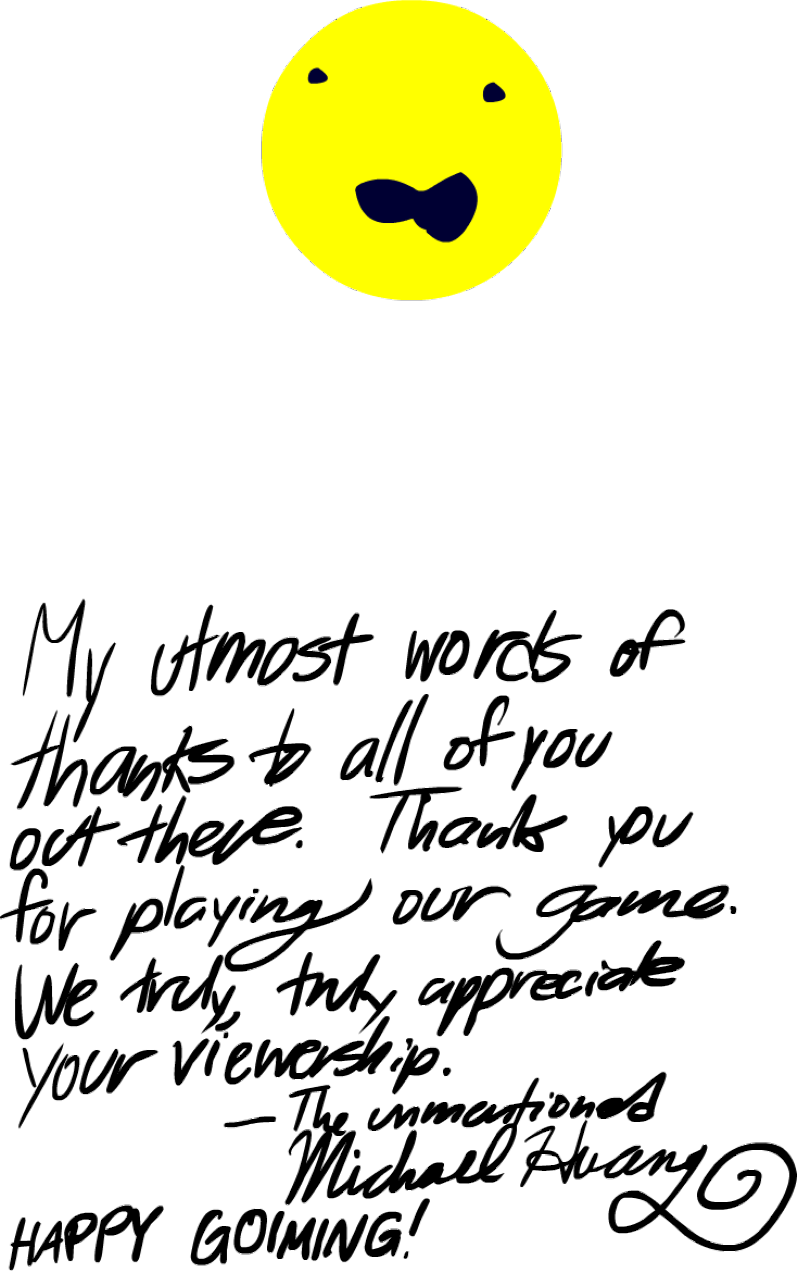 My utmost words of
thanks to all of you
out there. Thanks you
for playing our game.
We truly, truly appreciate
your viewership.
— The unmentioned
Michael Huang
HAPPY GOIMING!